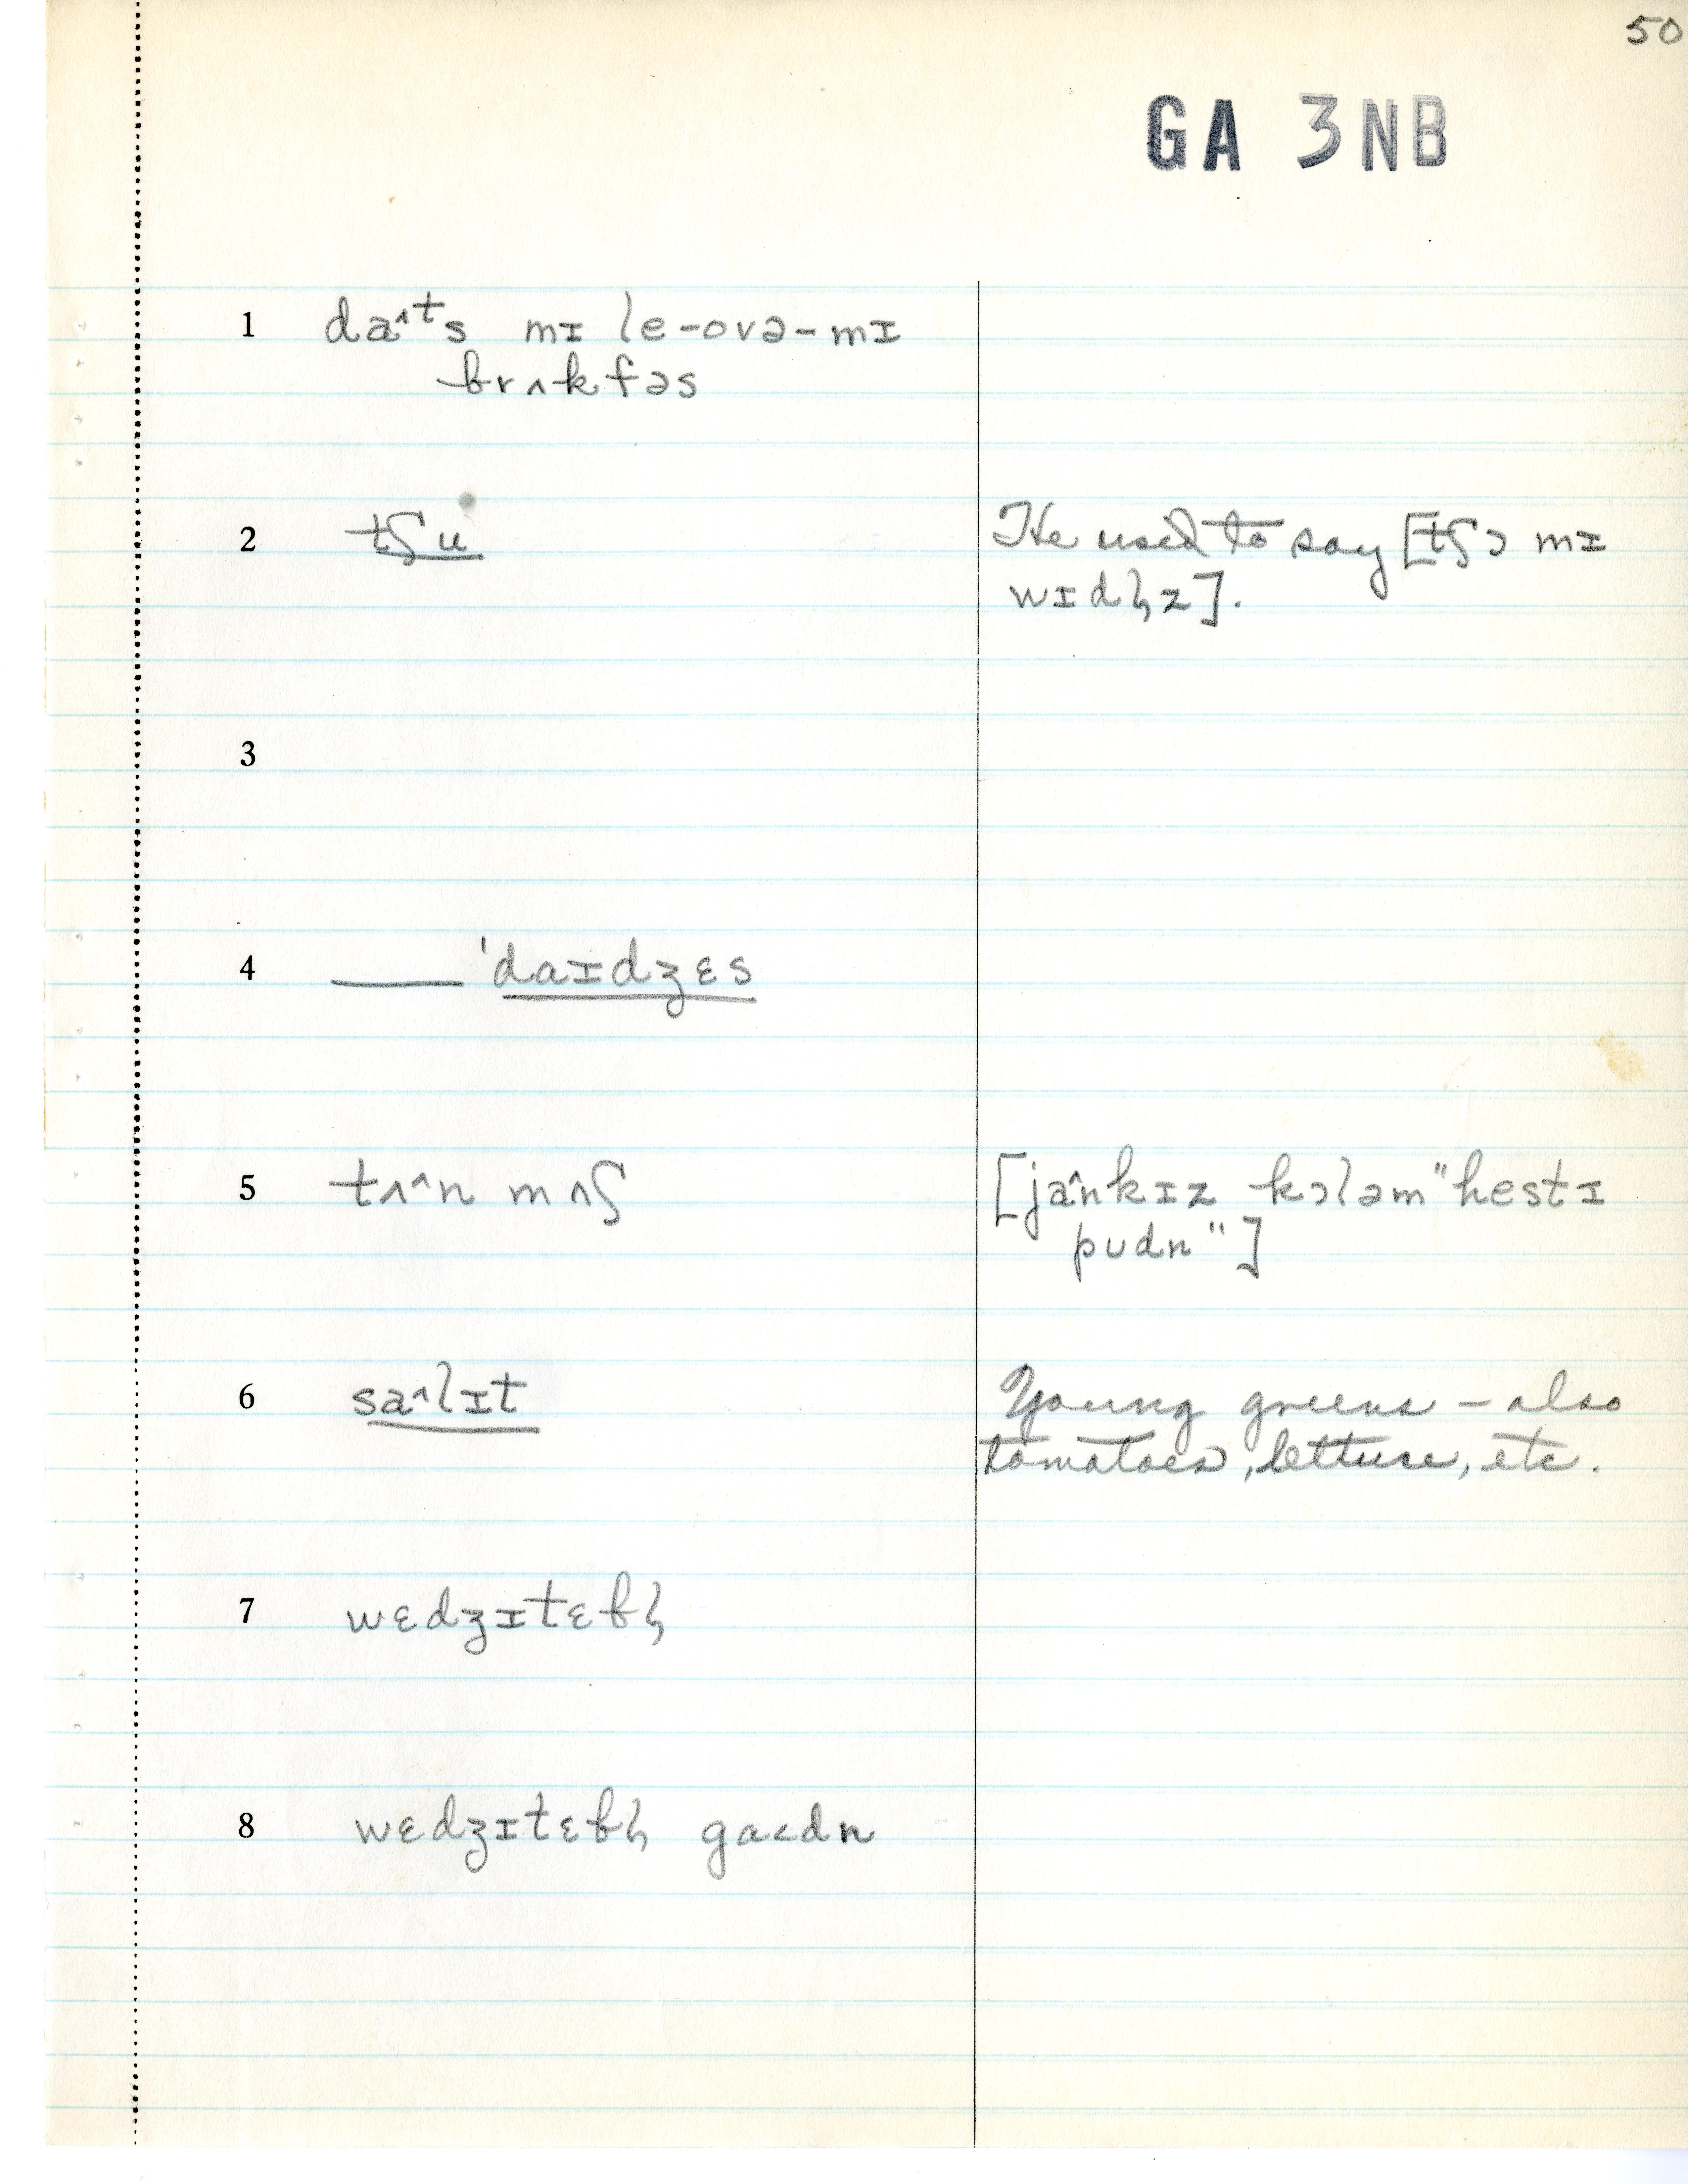 50
GA 3NB
1 daʌᵗs mɪ le-ovə-mɪ
brʌkfəs
2 tʃu He used to say [tʃɔ mɪ
wɪdl̩z].
3
4 ___ ˈdaɪdʒɛs
5 tʌ^n mʌʃ [ja^nkɪz kɔləm "hestɪ
pudn"]
6 sa^lɪt Young greens – also
tomatoes, lettuce, etc.
7 wɛdʒɪtɛbl̩
8 wɛdʒɪtɛbl̩ ga<dn